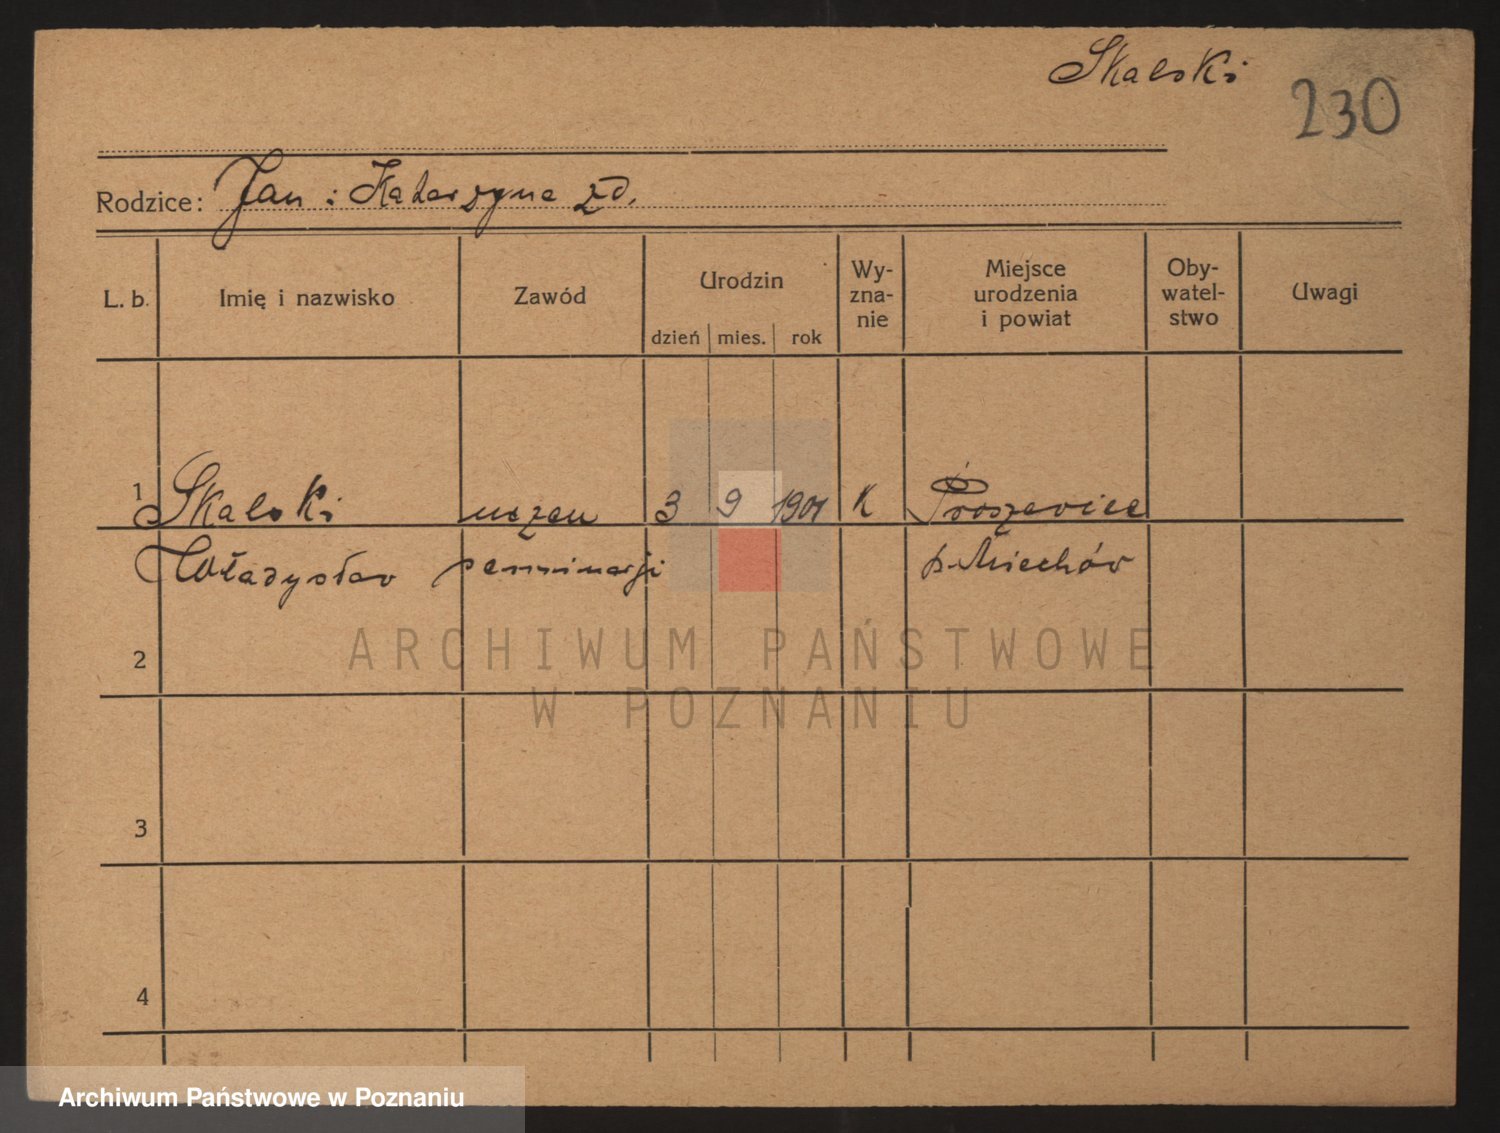 Skalski
230
Rodzice: Jan i Katarzyna zd.
L. b. Imię i nazwisko Zawód Urodzin dzień mies. rok Wy-zna-nie Miejsce urodzenia i powiat Oby-watel-stwo Uwagi
1 Skalski uczeń 3 9 1901 K Proszowice
Władysław seminarji p. Miechów
2
3
4
ARCHIWUM PAŃSTWOWE
W POZNANIU
Archiwum Państwowe w Poznaniu